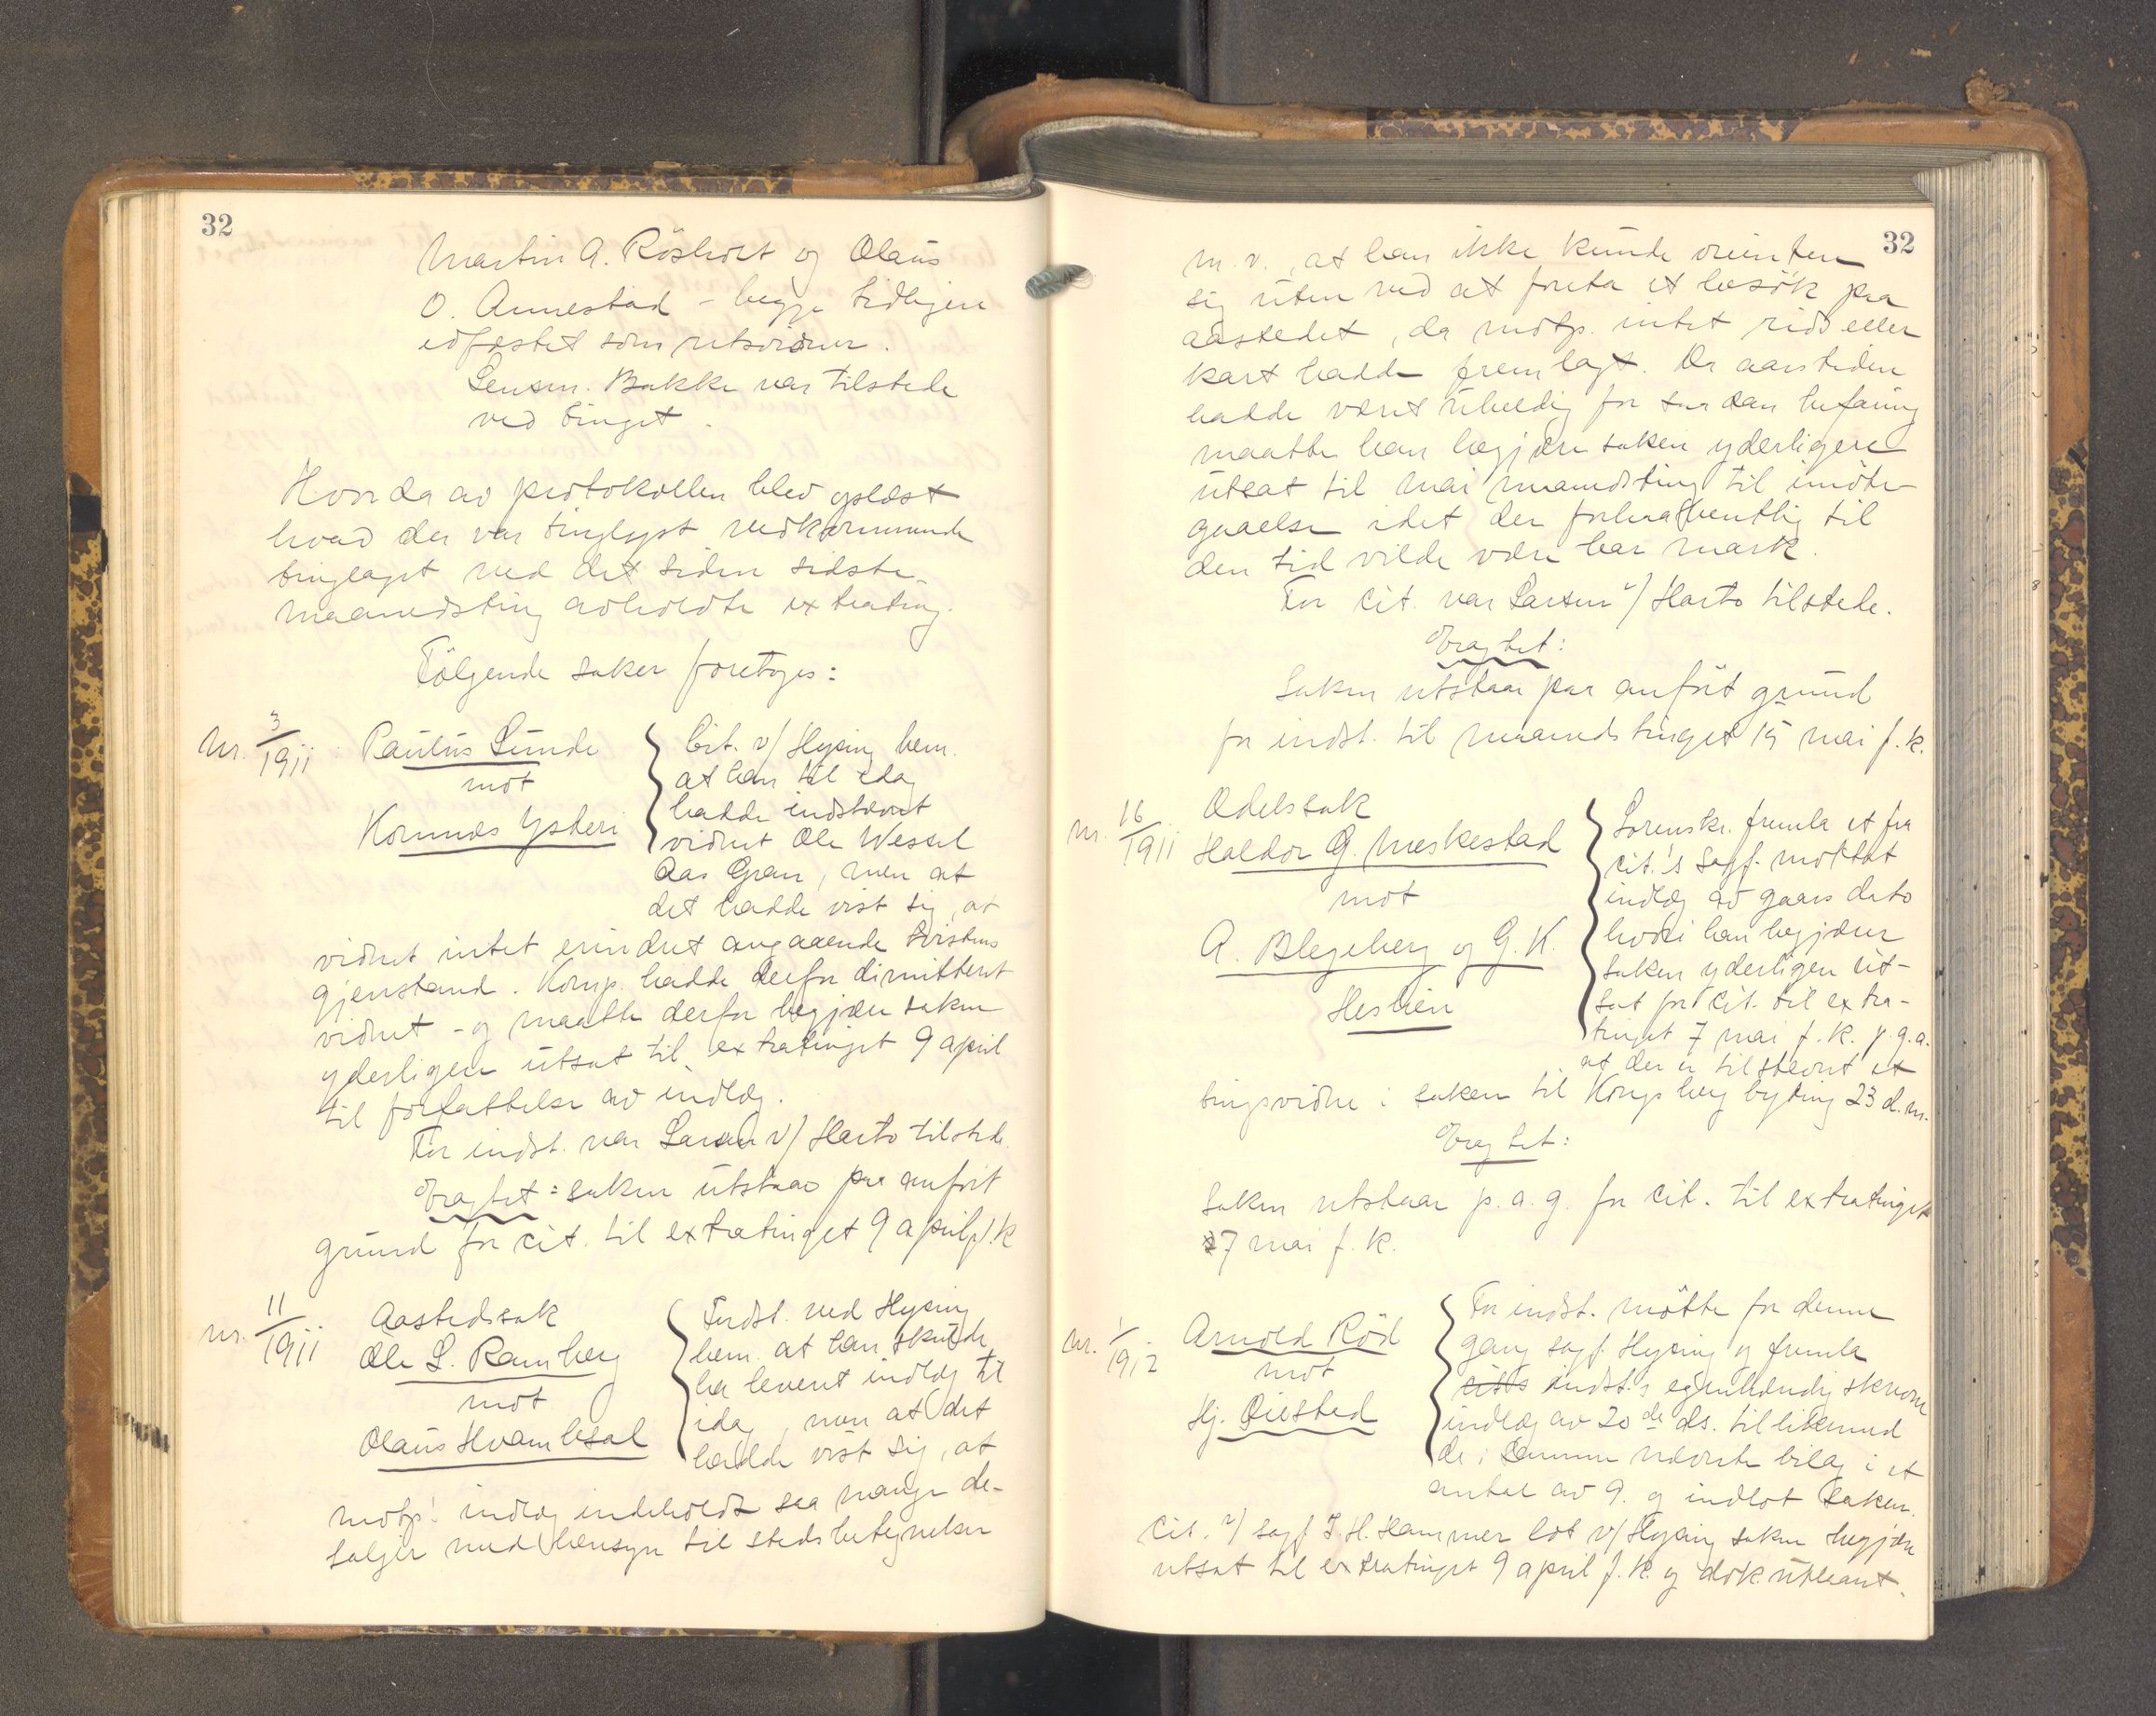 32
Martin A. Rösholt og Olaus
O. Annestad - begge tidligere
edfæstet som retsvidner.
Lensm. Bakke var tilstede
ved tinget.
Hvorda av protokollen blev oplæst
hvad der var tinglyst vedkommende
tinglaget ved det siden sidste
maanedsting avholdte extrating.
Følgende saker foretoges:
Nr. 3/1911 Paulus Lunde
mot
Komnæs Ysteri
Cit. v/ Hysing bem.
at han til idag
hadde indstævnt
vidnet Ole Wessel
Aas Gran, men at
det hadde vist sig, at
vidnet intet erindret angaaende tvistens
gjenstand. Komp. hadde derfor dimitteret
vidnet - og maatte derfor begjære saken
yderligere utsat til extratinget 9 april
til forfattelse av indlæg.
For indst. var Larsen v/ Harto tilstede.
Eragtet: saken utstaar paa anført
grund for cit. til extratinget 9 april f.k
Nr. 11/1911 Aastedssak
Ole L. Ramberg
mot
Olaus Hvambsal
Indst. ved Hysing
bem. at han skulde
ha levert indlæg til
idag, men at det
hadde vist sig, at
motp.' indlæg indeholdt saa mange de-
taljer med hensyn til stedsbetegnelser
32
m. v., at han ikke kunde orientere
sig uten ved at foreta et besøk paa
aastedet, da motp. intet rids eller
kart hadde fremlagt. Da aarstiden
hadde været uheldig for saadan befaring
maatte han begjære saken yderligere
utsat til mai maanedsting til imøte-
gaaelse idet der forhaabentlig til
den tid vilde være bar mark.
For cit. var Larsen v/ Harto tilstede.
Eragtet:
Saken utstaar paa anført grund
for indst. til maanedstinget 15 mai f. k.
Nr. 16/1911 Odelssak
Haldor G. Meskestad
mot
A. Blegeberg og G. K.
Hestien
Sorenskr. fremla et fra
cit.'s sagf. mottat
indlæg av gaars dato
hvori han begjærer
saken yderligere ut-
sat for cit. til extra-
tinget 7 mai f. k. p. g. a.
at der er tilstevnt et
tingsvidne i saken til Kongsberg byting 23 d. m.
Eragtet:
Saken utstaar p. a. g. for cit. til extratinget
7 mai f. k.
Nr. 1/1912 Arnold Röd
mot
Hj. Öiestad
For indst. møtte for denne
gang sagf. Hysing og fremla
cit's indst.s egenhændig skrevne
indlæg av 20de ds. tillikemed
de i samme nævnte bilag i et
antal av 9. og indlot saken.
Cit. v/ sagf. J. H. Hammer lot v/ Hysing saken begjære
utsat til extratinget 9 april f. k. og dok. utleant.